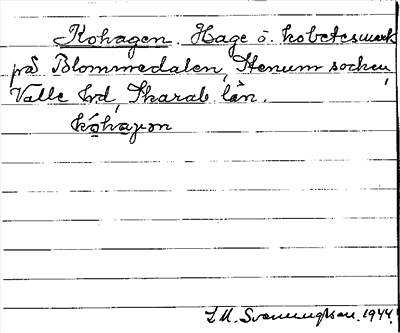 Kohagen. Hage o. kobetesmark
på Blommedalen, Stenum socken,
Valle hd, Skarab. län.
kóhaγən
I. M. Svenungsson. 1944.